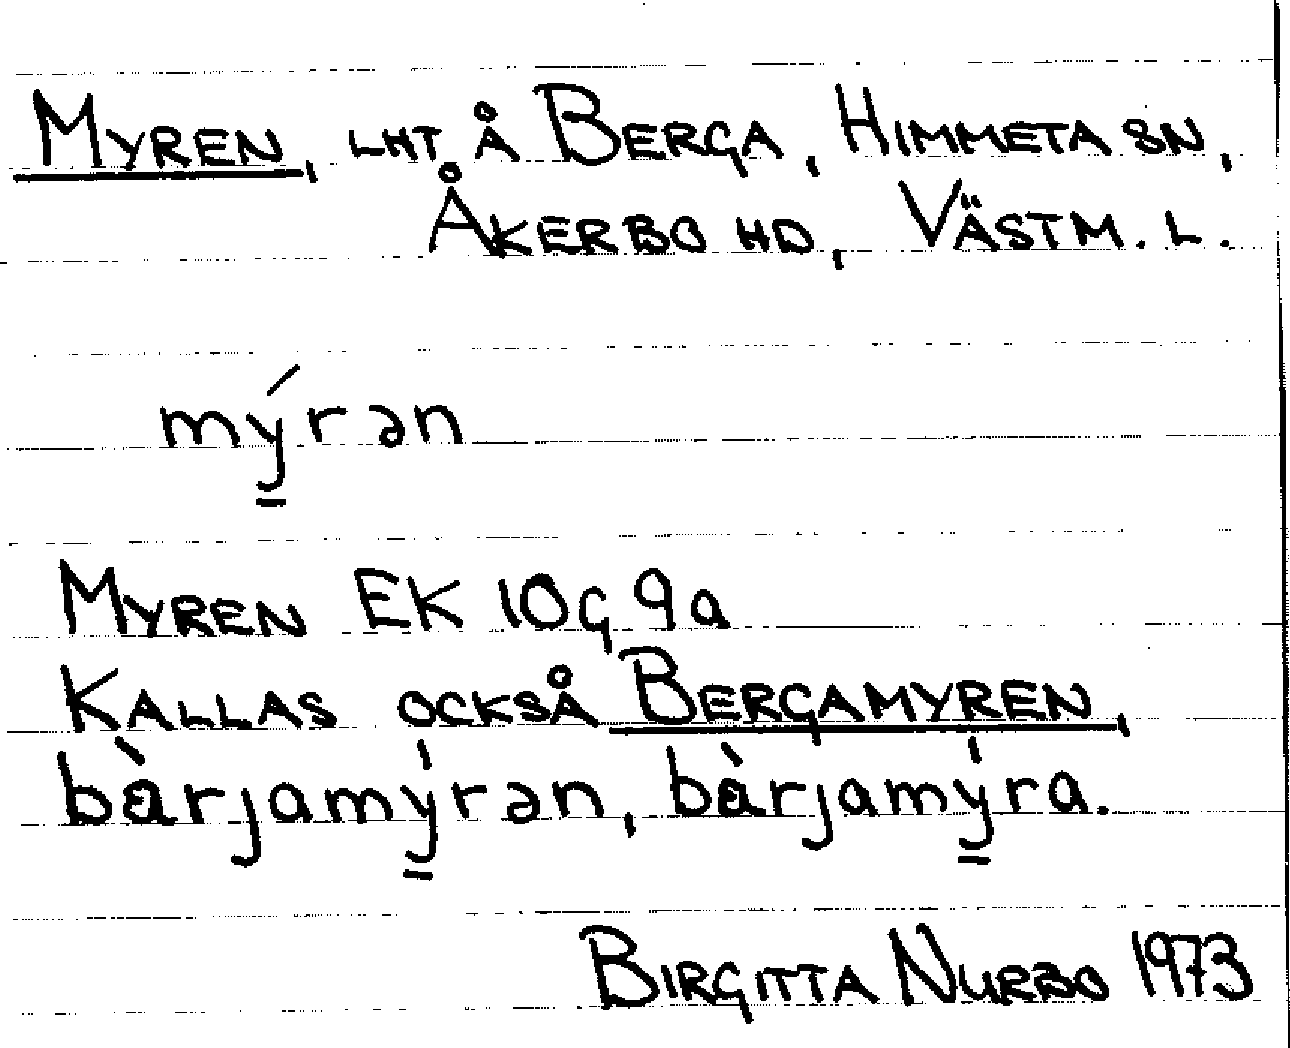 MYREN, LHT Å BERGA, HIMMETA SN,
ÅKERBO HD, VÄSTM. L.
mý̱rən
MYREN EK 10G 9a
KALLAS OCKSÅ BERGAMYREN,
bæ̀rjamý̱rən, bæ̀rjamý̱ra.
BIRGITTA NURBO 1973